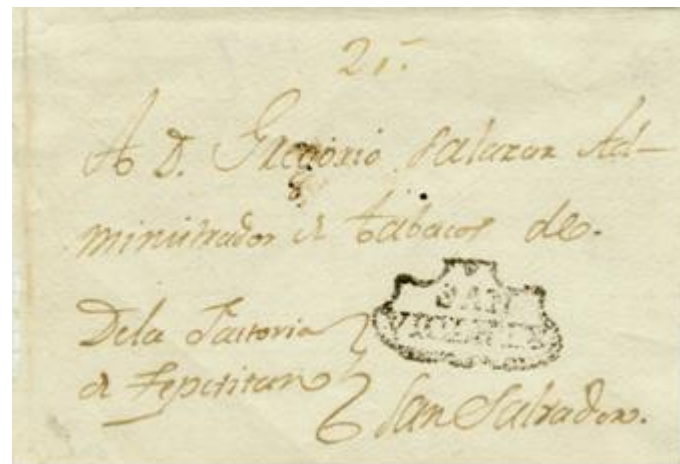 21.
A D. Gregorio Salazar Ad-
ministrador de tabacos de.
SAN
VICENTE
Dela Factoria
de Tepetitan
San Salvador.